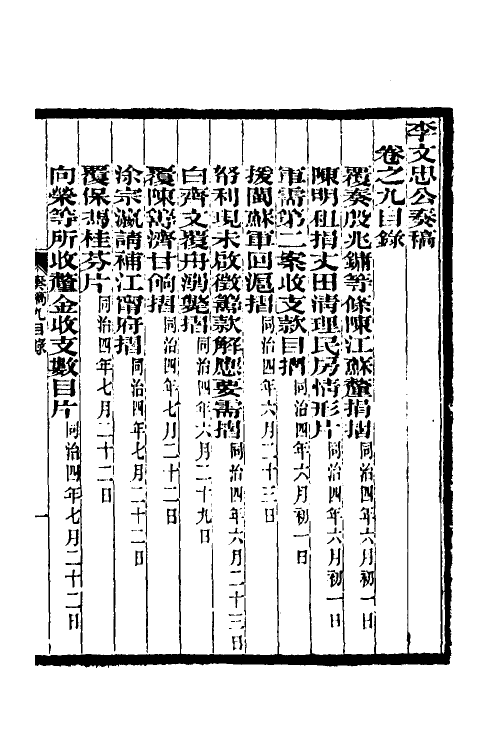 李文忠公奏稿
卷之九目錄
覆奏殷兆鏞等條陳江蘇釐捐摺同治四年六月初一日
陳明租捐丈田清理民房情形片同治四年六月初一日
軍需第二案收支款目摺同治四年六月初一日
援閩蘇軍回滬摺同治四年六月二十三日
奍利現未啟徵籌款解應要需摺同治四年六月二十三日
白齊文覆舟溺斃摺同治四年六月二十九日
覆陳籌濟甘餉摺同治四年七月二十二日
涂宗瀛請補江甯府摺同治四年七月二十二日
覆保馮桂芬片同治四年七月二十二日
向榮等所收釐金收支數目片同治四年七月二十二日
奏稿九目錄
一